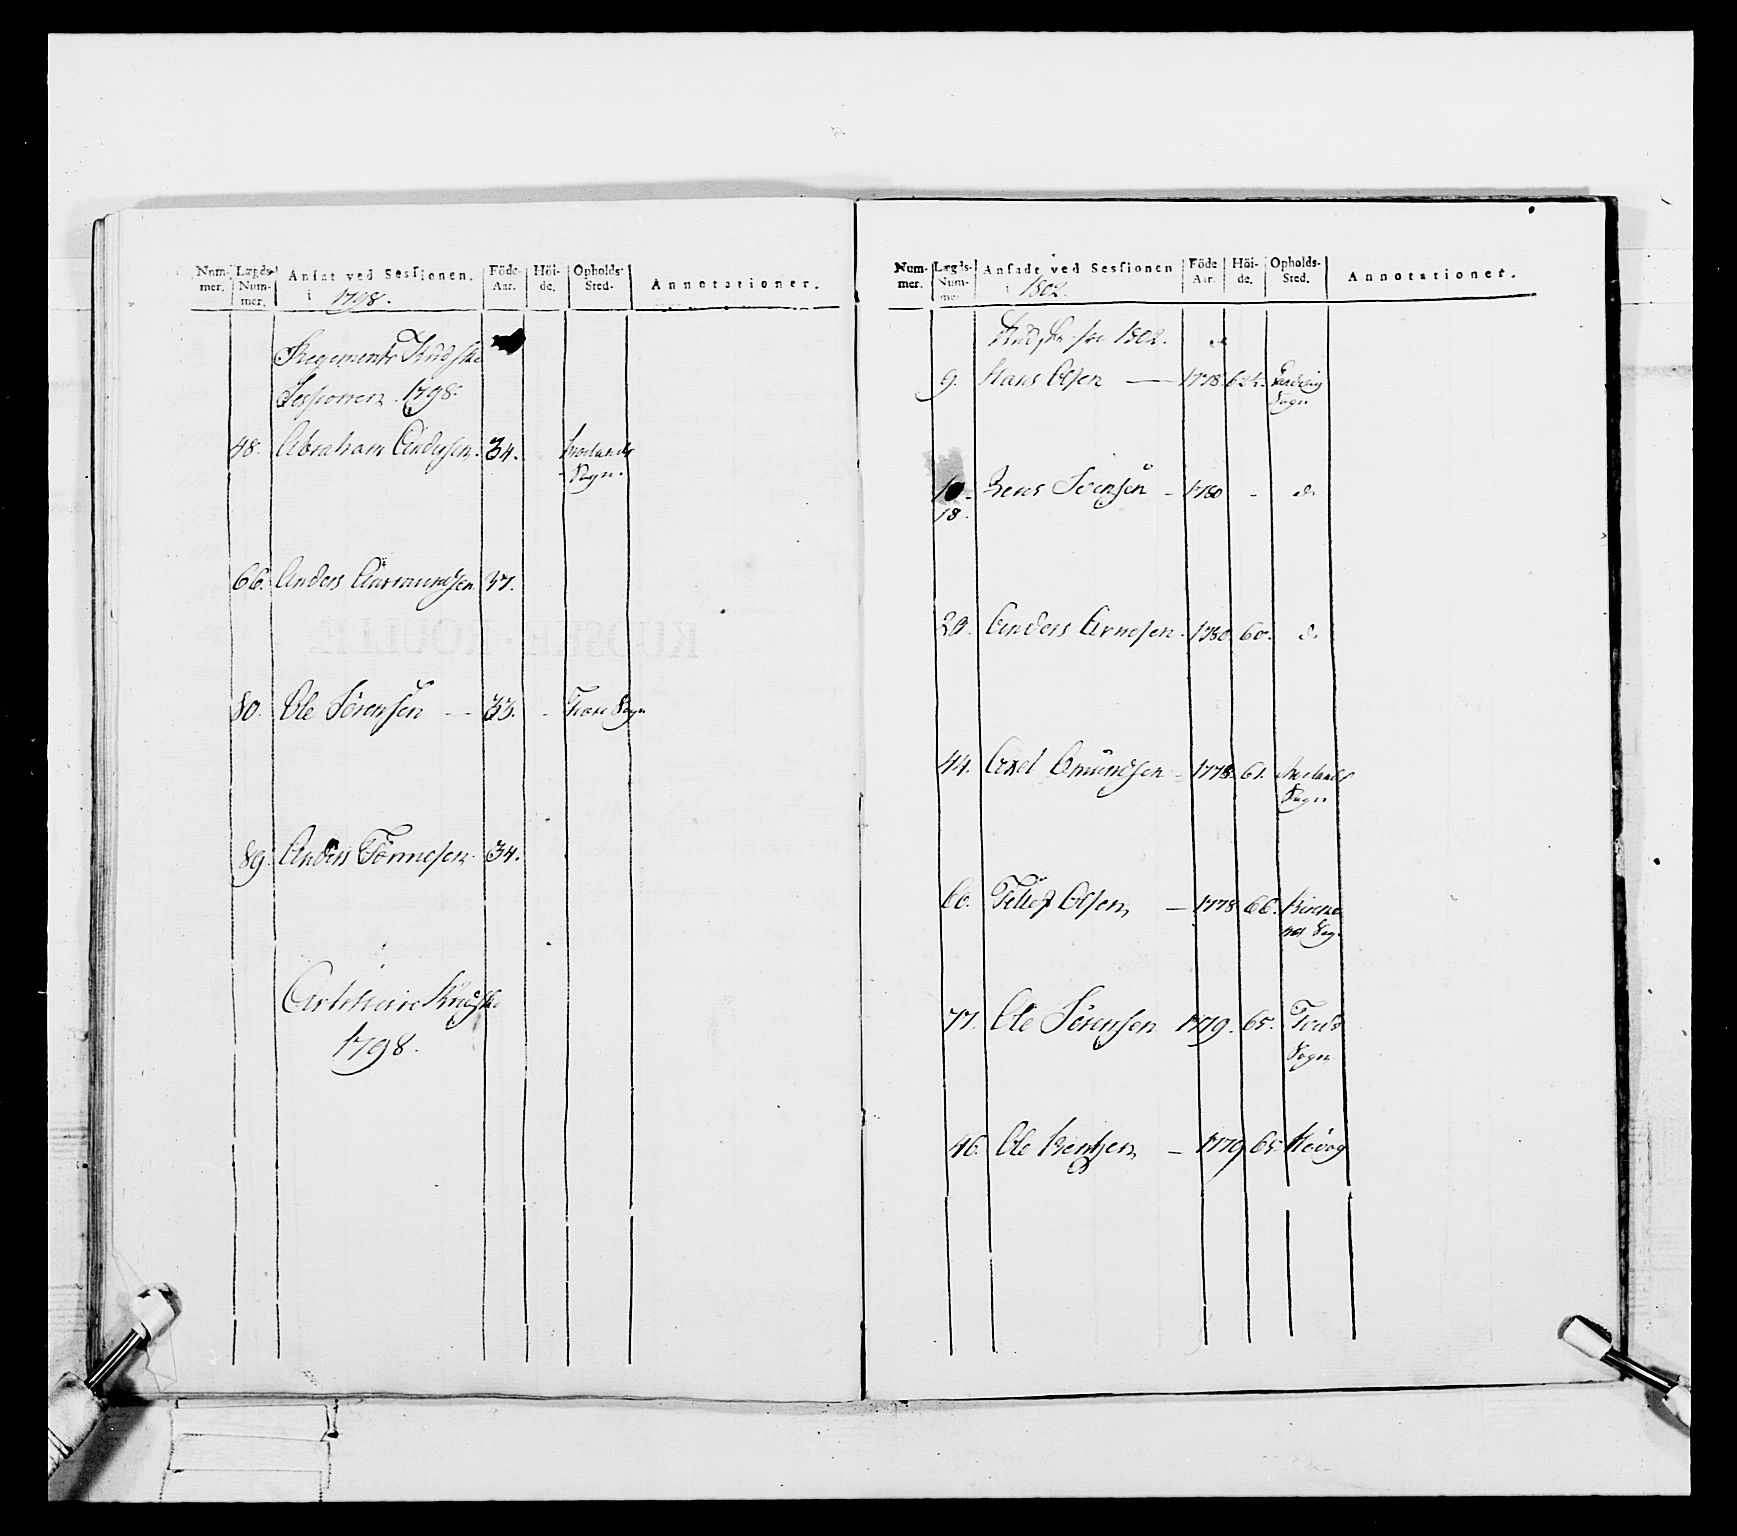 Num- mer. Lægds- Num- mer. Ansat ved Sessionen. i 1798. Föde Aar. Höi- de. Opholds- Sted. Annotationer.
Regements Kudske
Sessionen 1798.
48. Abraham Andersen. 34. Sogn.
66. Anders Aanmundsen 37.
80. Ole Sörensen — 33. - Sogn
89. Anders Tönnesen 34.
Artillerie Kudske
1798.
Num- mer. Lægds- Num- mer. Ansadt ved Sessionen i 1802. Föde Aar. Höi- de. Opholds- Sted. Annotationer.
Kudske 1802.
9. Hans Olsen — 1778. Sogn
10. Jens Sörensen - 1780 - d.
18.
29. Anders Arnesen. 1780. 60. d.
44. Axel Omundsen - 1778. 61. Sogn
60. Tellef Olsen — 1778 66. Birke-
nes Sogn
77. Ole Sörensen 1779. 65.
Sogn
46. Ole Bentsen — 1779 65. Hövog